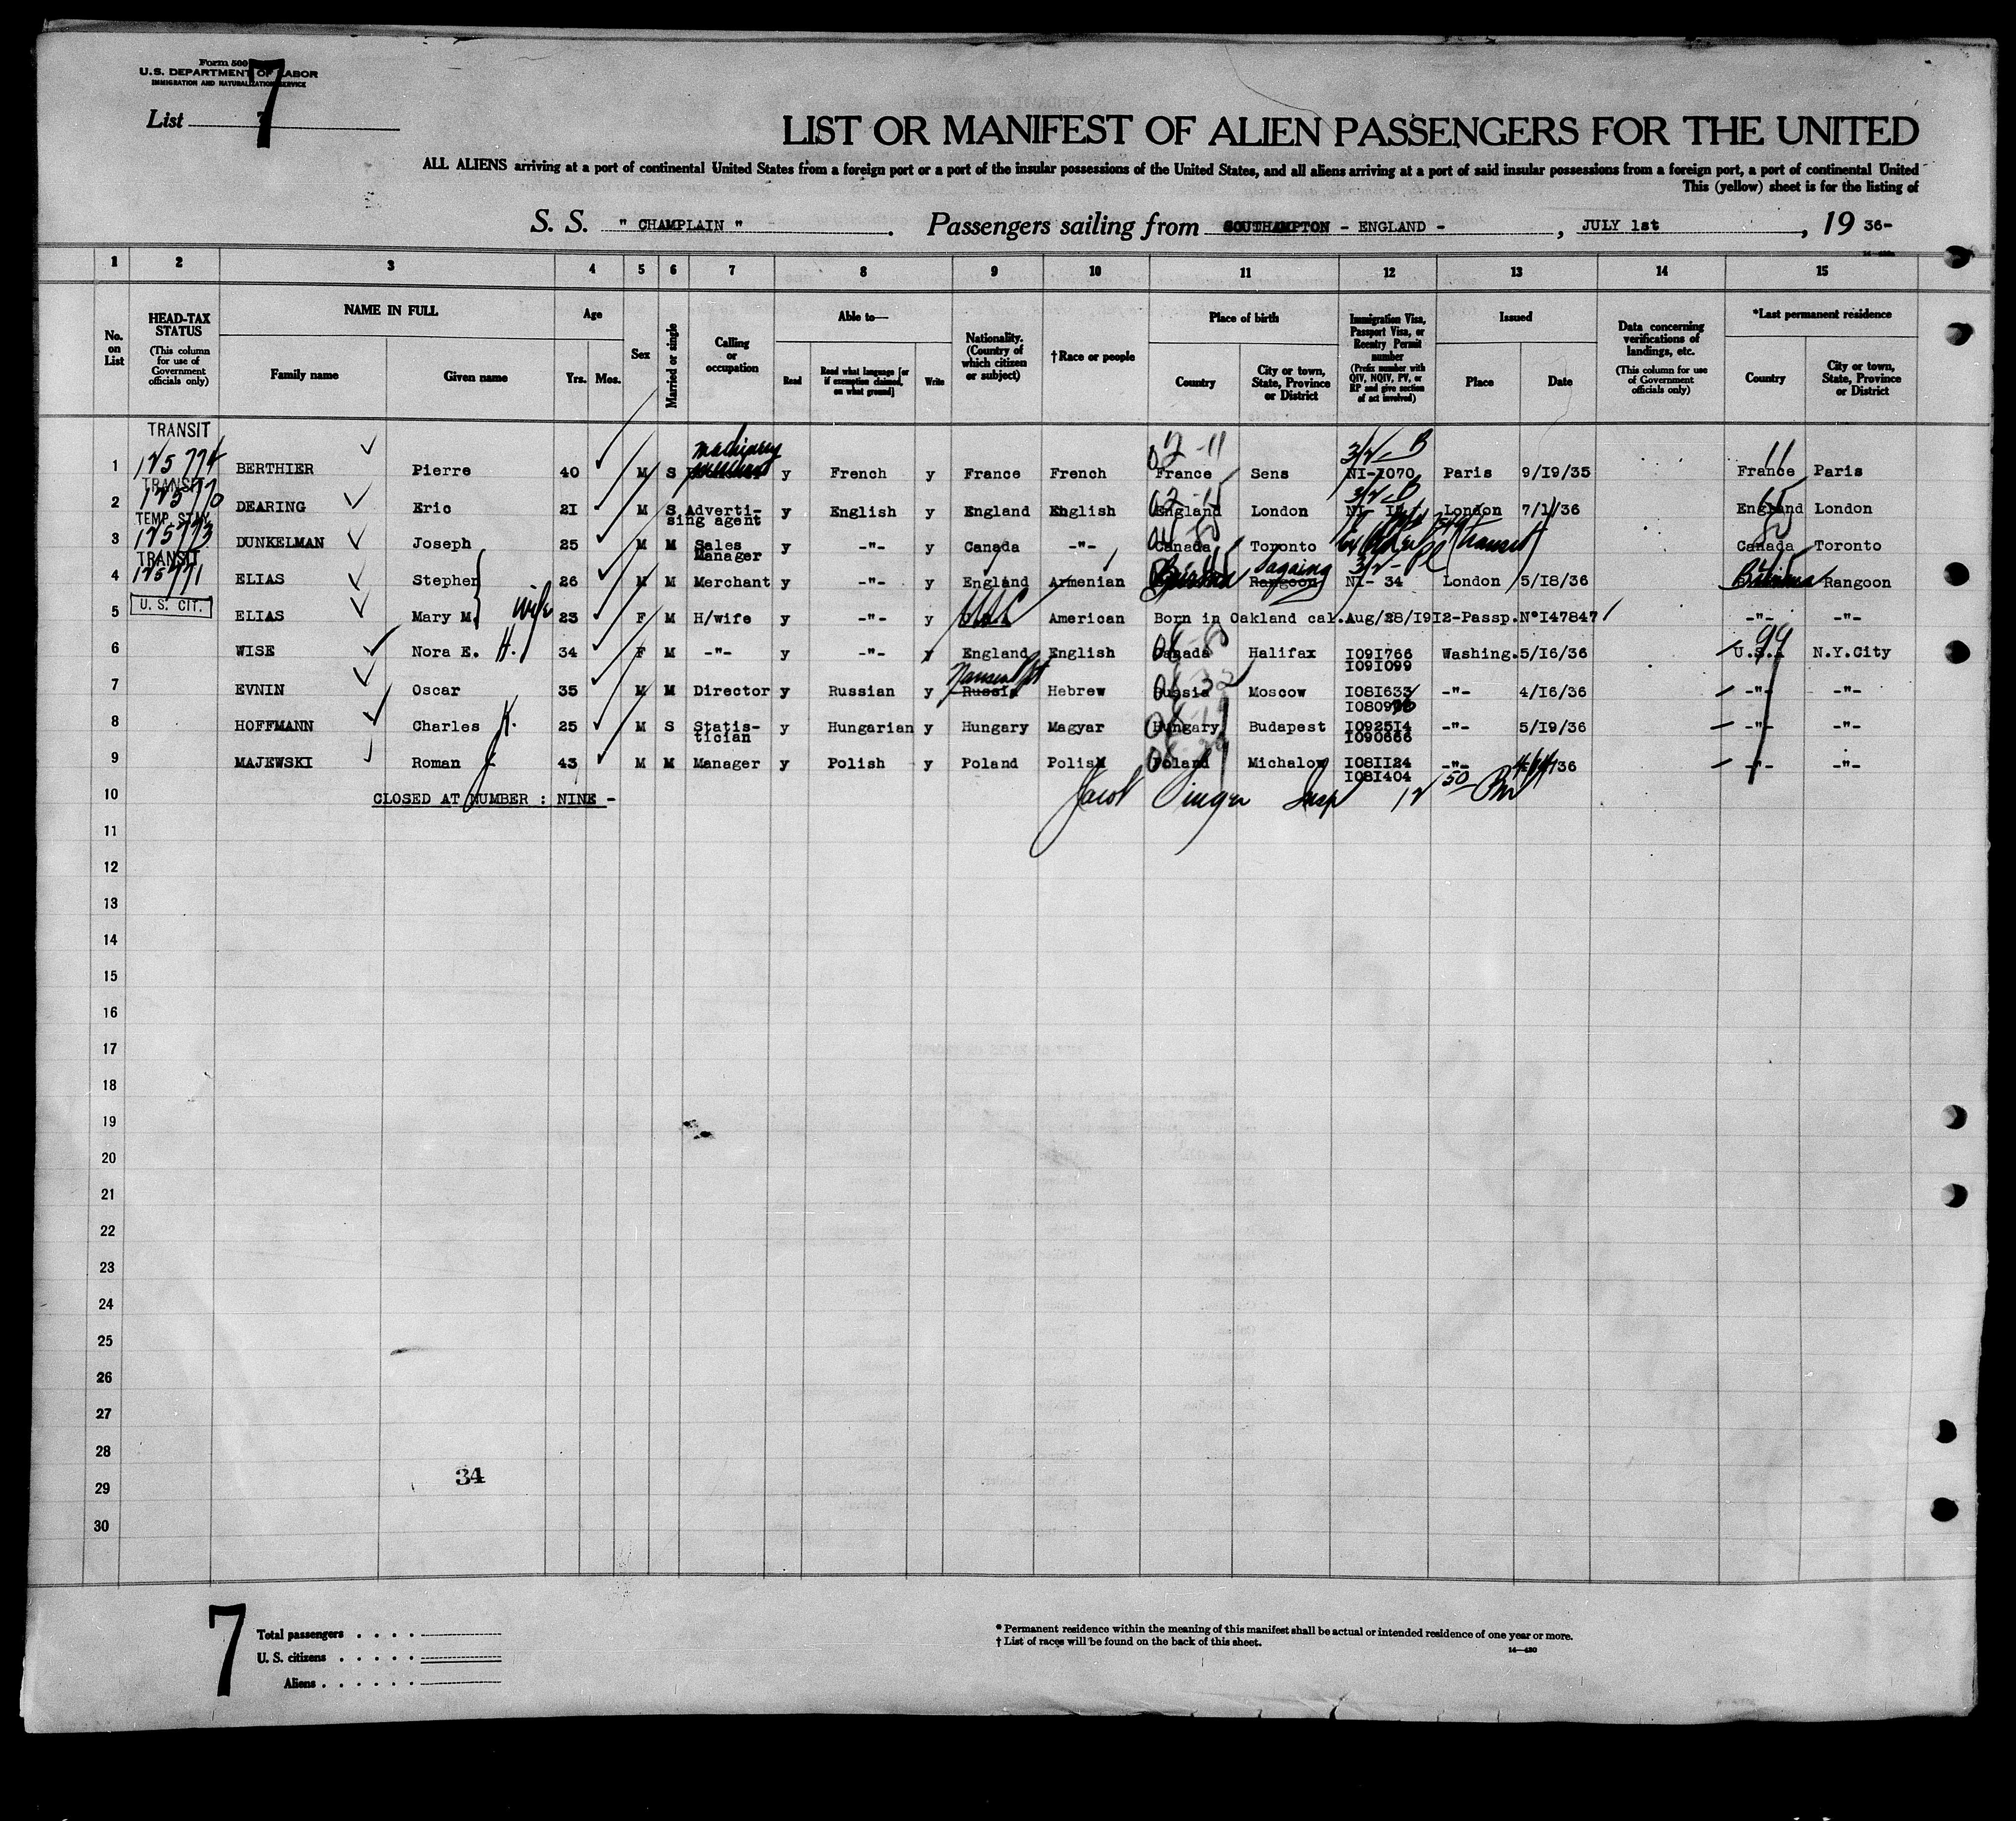 Form 500
U.S. DEPARTMENT OF LABOR
IMMIGRATION AND NATURALIZATION SERVICE
List 7
LIST OR MANIFEST OF ALIEN PASSENGERS FOR THE UNITED
ALL ALIENS arriving at a port of continental United States from a foreign port or a port of the insular possessions of the United States, and all aliens arriving at a port of said insular possessions from a foreign port, a port of continental United
This (yellow) sheet is for the listing of
S. S. " CHAMPLAIN " . Passengers sailing from SOUTHAMPTON - ENGLAND - , JULY 1st , 19 36-
1 2 3 4 5 6 7 8 9 10 11 12 13 14 15
No. on List
HEAD-TAX STATUS
(This column for use of Government officials only)
NAME IN FULL
Family name
Given name
Age
Yrs. Mos.
Sex
Married or single
Calling or occupation
Able to—
Read
Read what language [or if exemption claimed, on what ground]
Write
Nationality. (Country of which citizen or subject)
†Race or people
Place of birth
Country
City or town, State, Province or District
Immigration Visa, Passport Visa, or Reentry Permit number
(Prefix number with QIV, NQIV, PV, or RP and give section of act involved)
Issued
Place
Date
Data concerning verifications of landings, etc.
(This column for use of Government officials only)
*Last permanent residence
Country
City or town, State, Province or District
TRANSIT
machinery
3/2 B
1 125774 BERTHIER Pierre 40 M S y French y France French France Sens NI-1070 Paris 9/19/35 France Paris
TRANSIT
3/2 B
2 125770 DEARING Eric 21 M S Adverti-
sing agent y English y England English England London NI- London 7/1/36 England London
TEMP. STAY
3 125773 DUNKELMAN Joseph 25 M M Sales
Manager y -"- y Canada -"- Canada Toronto (transit) Canada Toronto
TRANSIT
Sagaing 3/2-
4 125771 ELIAS Stephen 26 M M Merchant y -"- y England Armenian Rangoon NI- 34 London 5/18/36 Rangoon
U. S. CIT.
5 ELIAS Mary M. Wife 23 F M H/wife y -"- y American Born in Oakland cal. Aug/28/1912-Passp.N°147847 -"- -"-
6 WISE Nora E. H. 34 F M -"- y -"- y England English Canada Halifax 1091766 Washing. 5/16/36 U.S.A N.Y.City
1091099
Nansen
7 EVNIN Oscar 35 M M Director y Russian y Russia Hebrew Russia Moscow 1081633 -"- 4/16/36 -"- -"-
8 HOFFMANN Charles 25 M S Statis-
tician y Hungarian y Hungary Magyar Hungary Budapest 1092514 -"- 5/19/36 -"- -"-
1090666
9 MAJEWSKI Roman 43 M M Manager y Polish y Poland Polish Poland Michalow 1081124 -"- -"- -"-
1081404
10 CLOSED AT NUMBER : NINE -
Jacob Singer Insp 12 50 Pm
11
12
13
14
15
16
17
18
19
20
21
22
23
24
25
26
27
28
29
30
34
7
Total passengers . . . .
U. S. citizens . . . . .
Aliens . . . . . .
* Permanent residence within the meaning of this manifest shall be actual or intended residence of one year or more.
† List of races will be found on the back of this sheet.
14—430